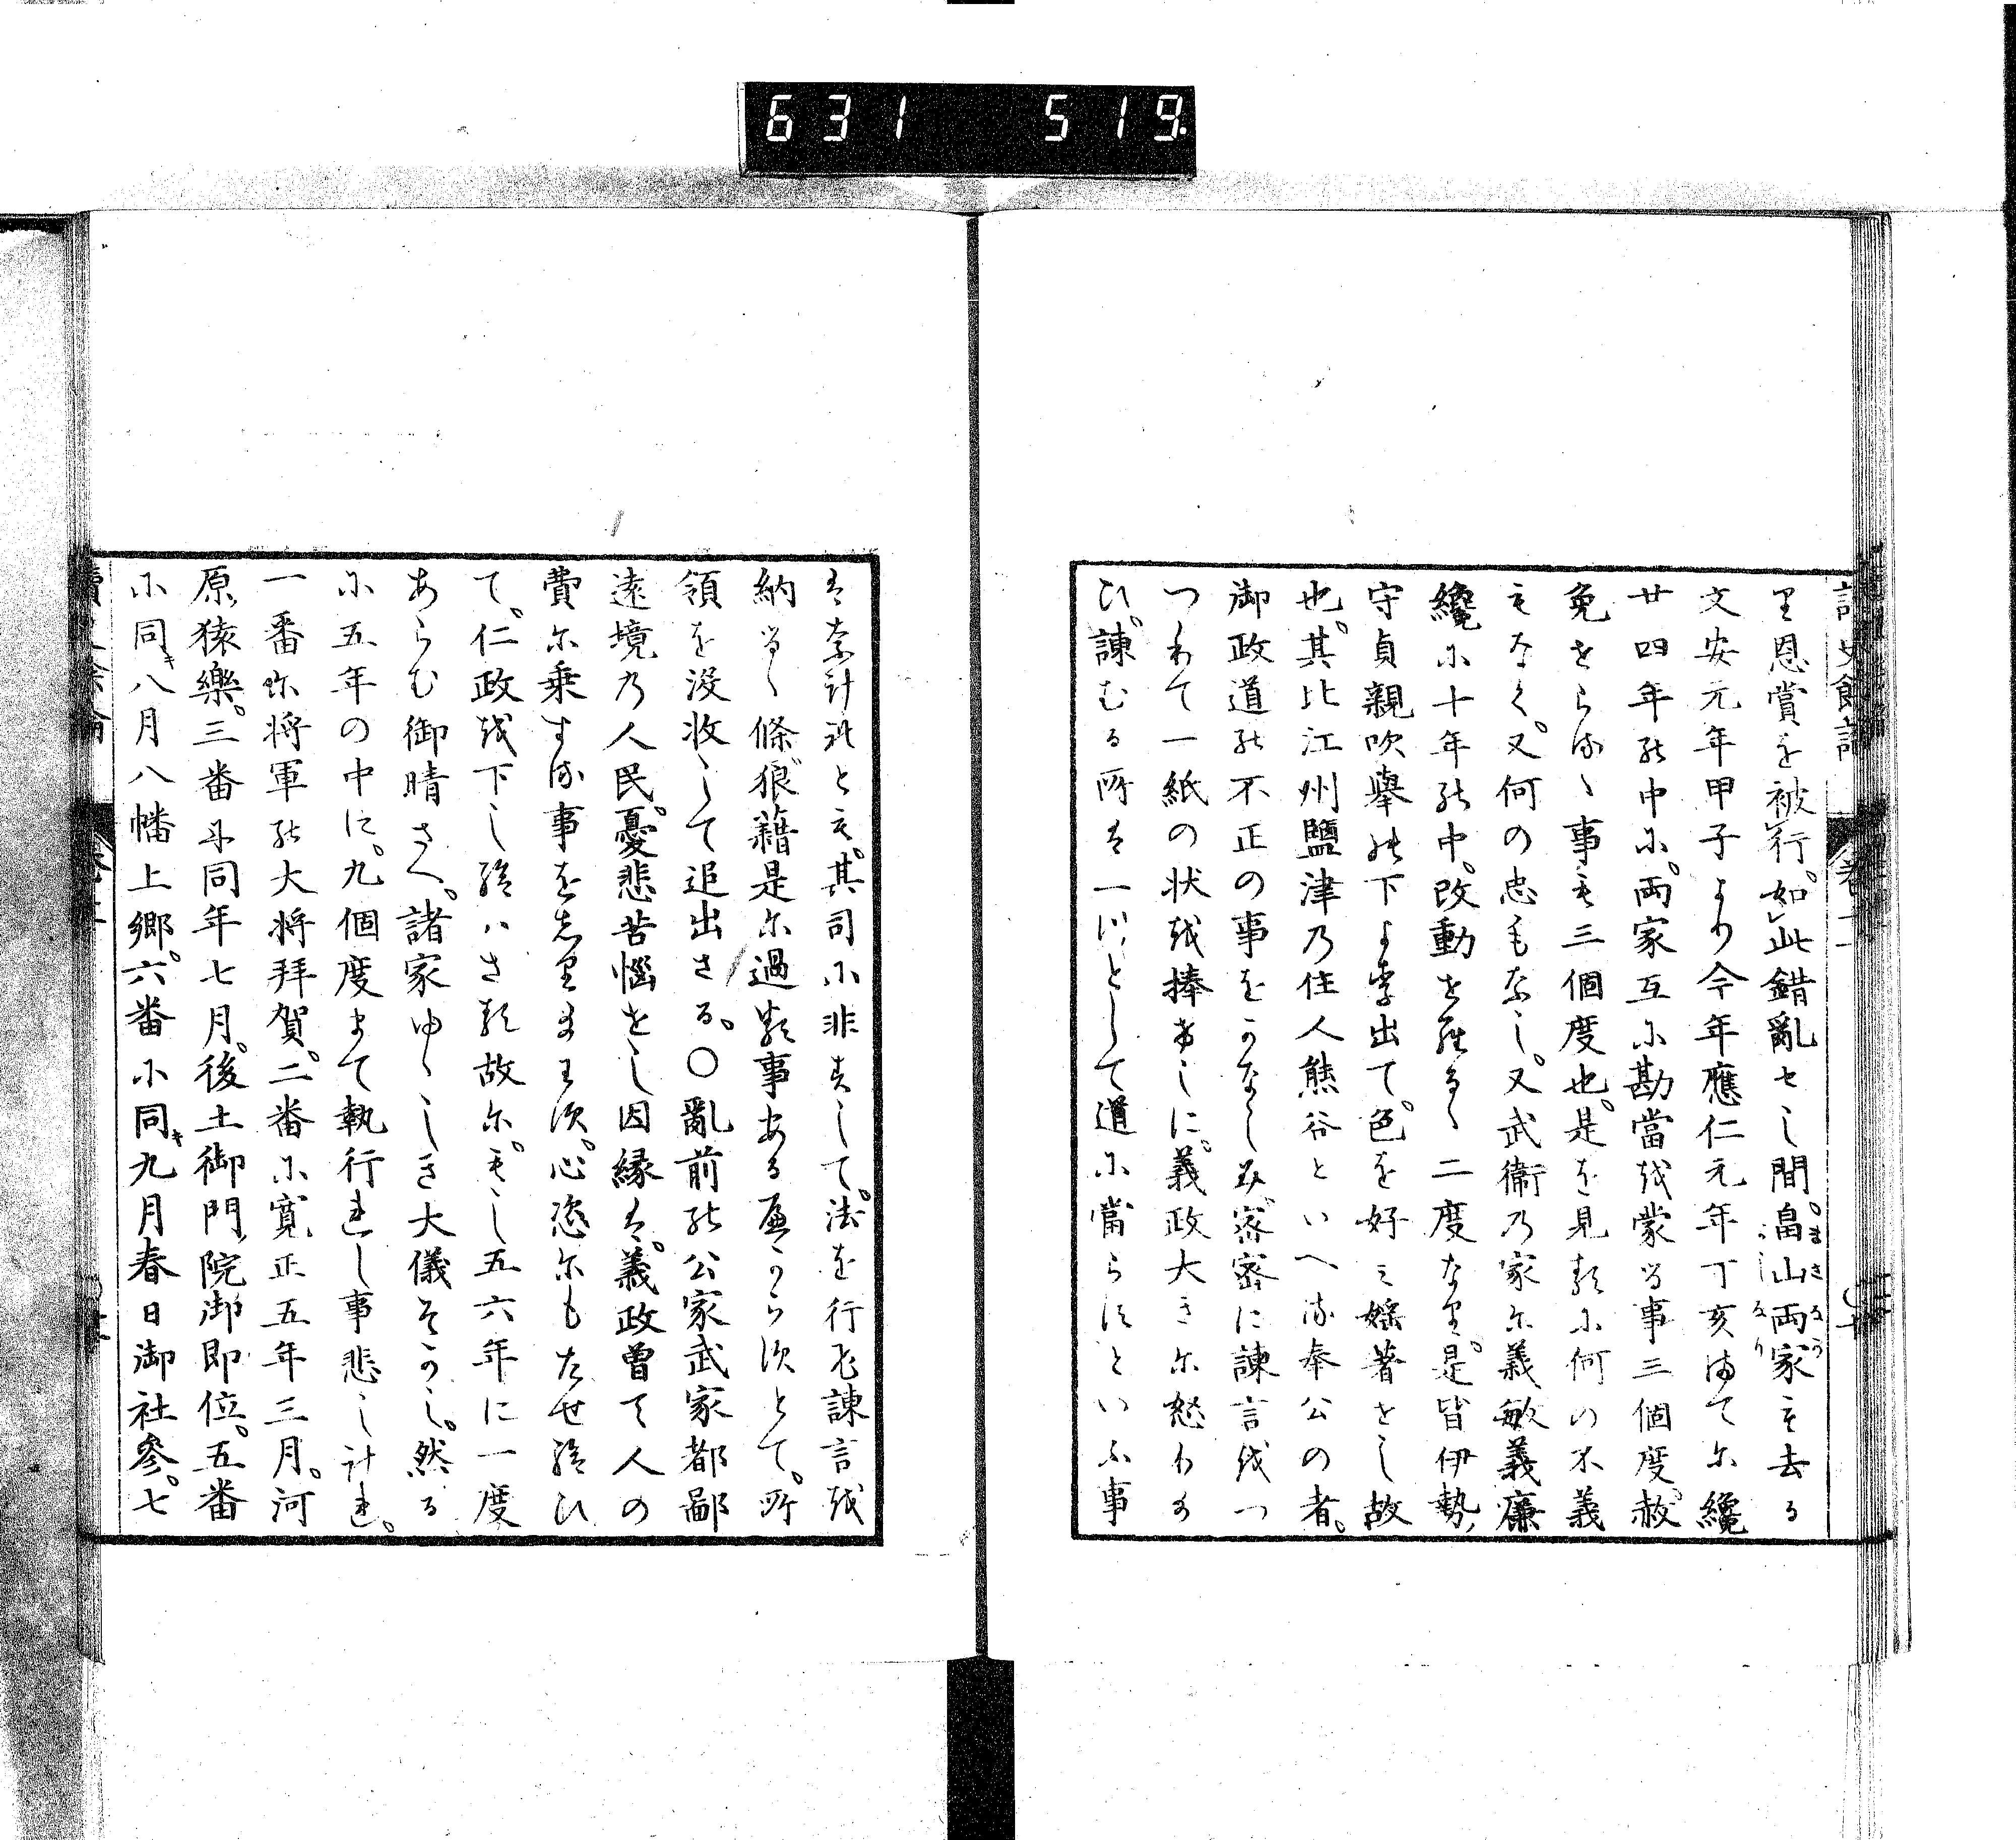 631 519.
里恩賞を被行。如此錯亂せし間。畠山両家も去る
文安元年甲子より今年應仁元年丁亥まてに纔
廿四年の中に。両家互に勘當を蒙る事三個度。赦
免せらるゝ事も三個度也。是を見るに何の不義
もなく。又何の忠もなし。又武衞の家に義敏義廉
纔に十年の中。改動せらるゝ二度なり。是皆伊勢
守貞親吹擧の下より出て。色を好み婬著せし故
也。其比江州鹽津の住人熊谷といへる奉公の者。
御政道の不正の事をかなしみ。密密に諫言をつ
つりて一紙の状を捧けしに。義政大きに怒りた
ひ。諫むる所は一一として道に當らすといふ事
はなけれとも。其司に非すして。法を行ひ諫言を
納るゝ條。狼籍是に過る事あるへからすとて。所
領を没收して追出さる。〇亂前の公家武家都鄙
遠境の人民。憂悲苦惱せし因縁は。義政曾て人の
費に乗する事をしりまはす。心恣にもたせ給ひ
て。仁政を下し給はさる故に。もし五六年に一度
あらむ御晴さへ。諸家ゆゝしき大儀そかし。然る
に五年の中に。九個度まて執行れし事悲しけれ。
一番に将軍の大将拜賀。二番に寛正五年三月。河
原猿樂。三番に同年七月。後土御門院御即位。五番
に同キ八月八幡上郷。六番に同キ九月春日御社參。七